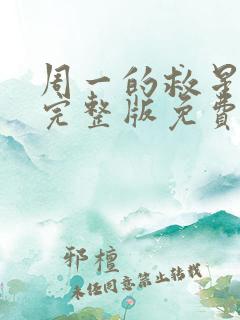 周一的救星
完整版免费
邪檀
未经同意禁止转载